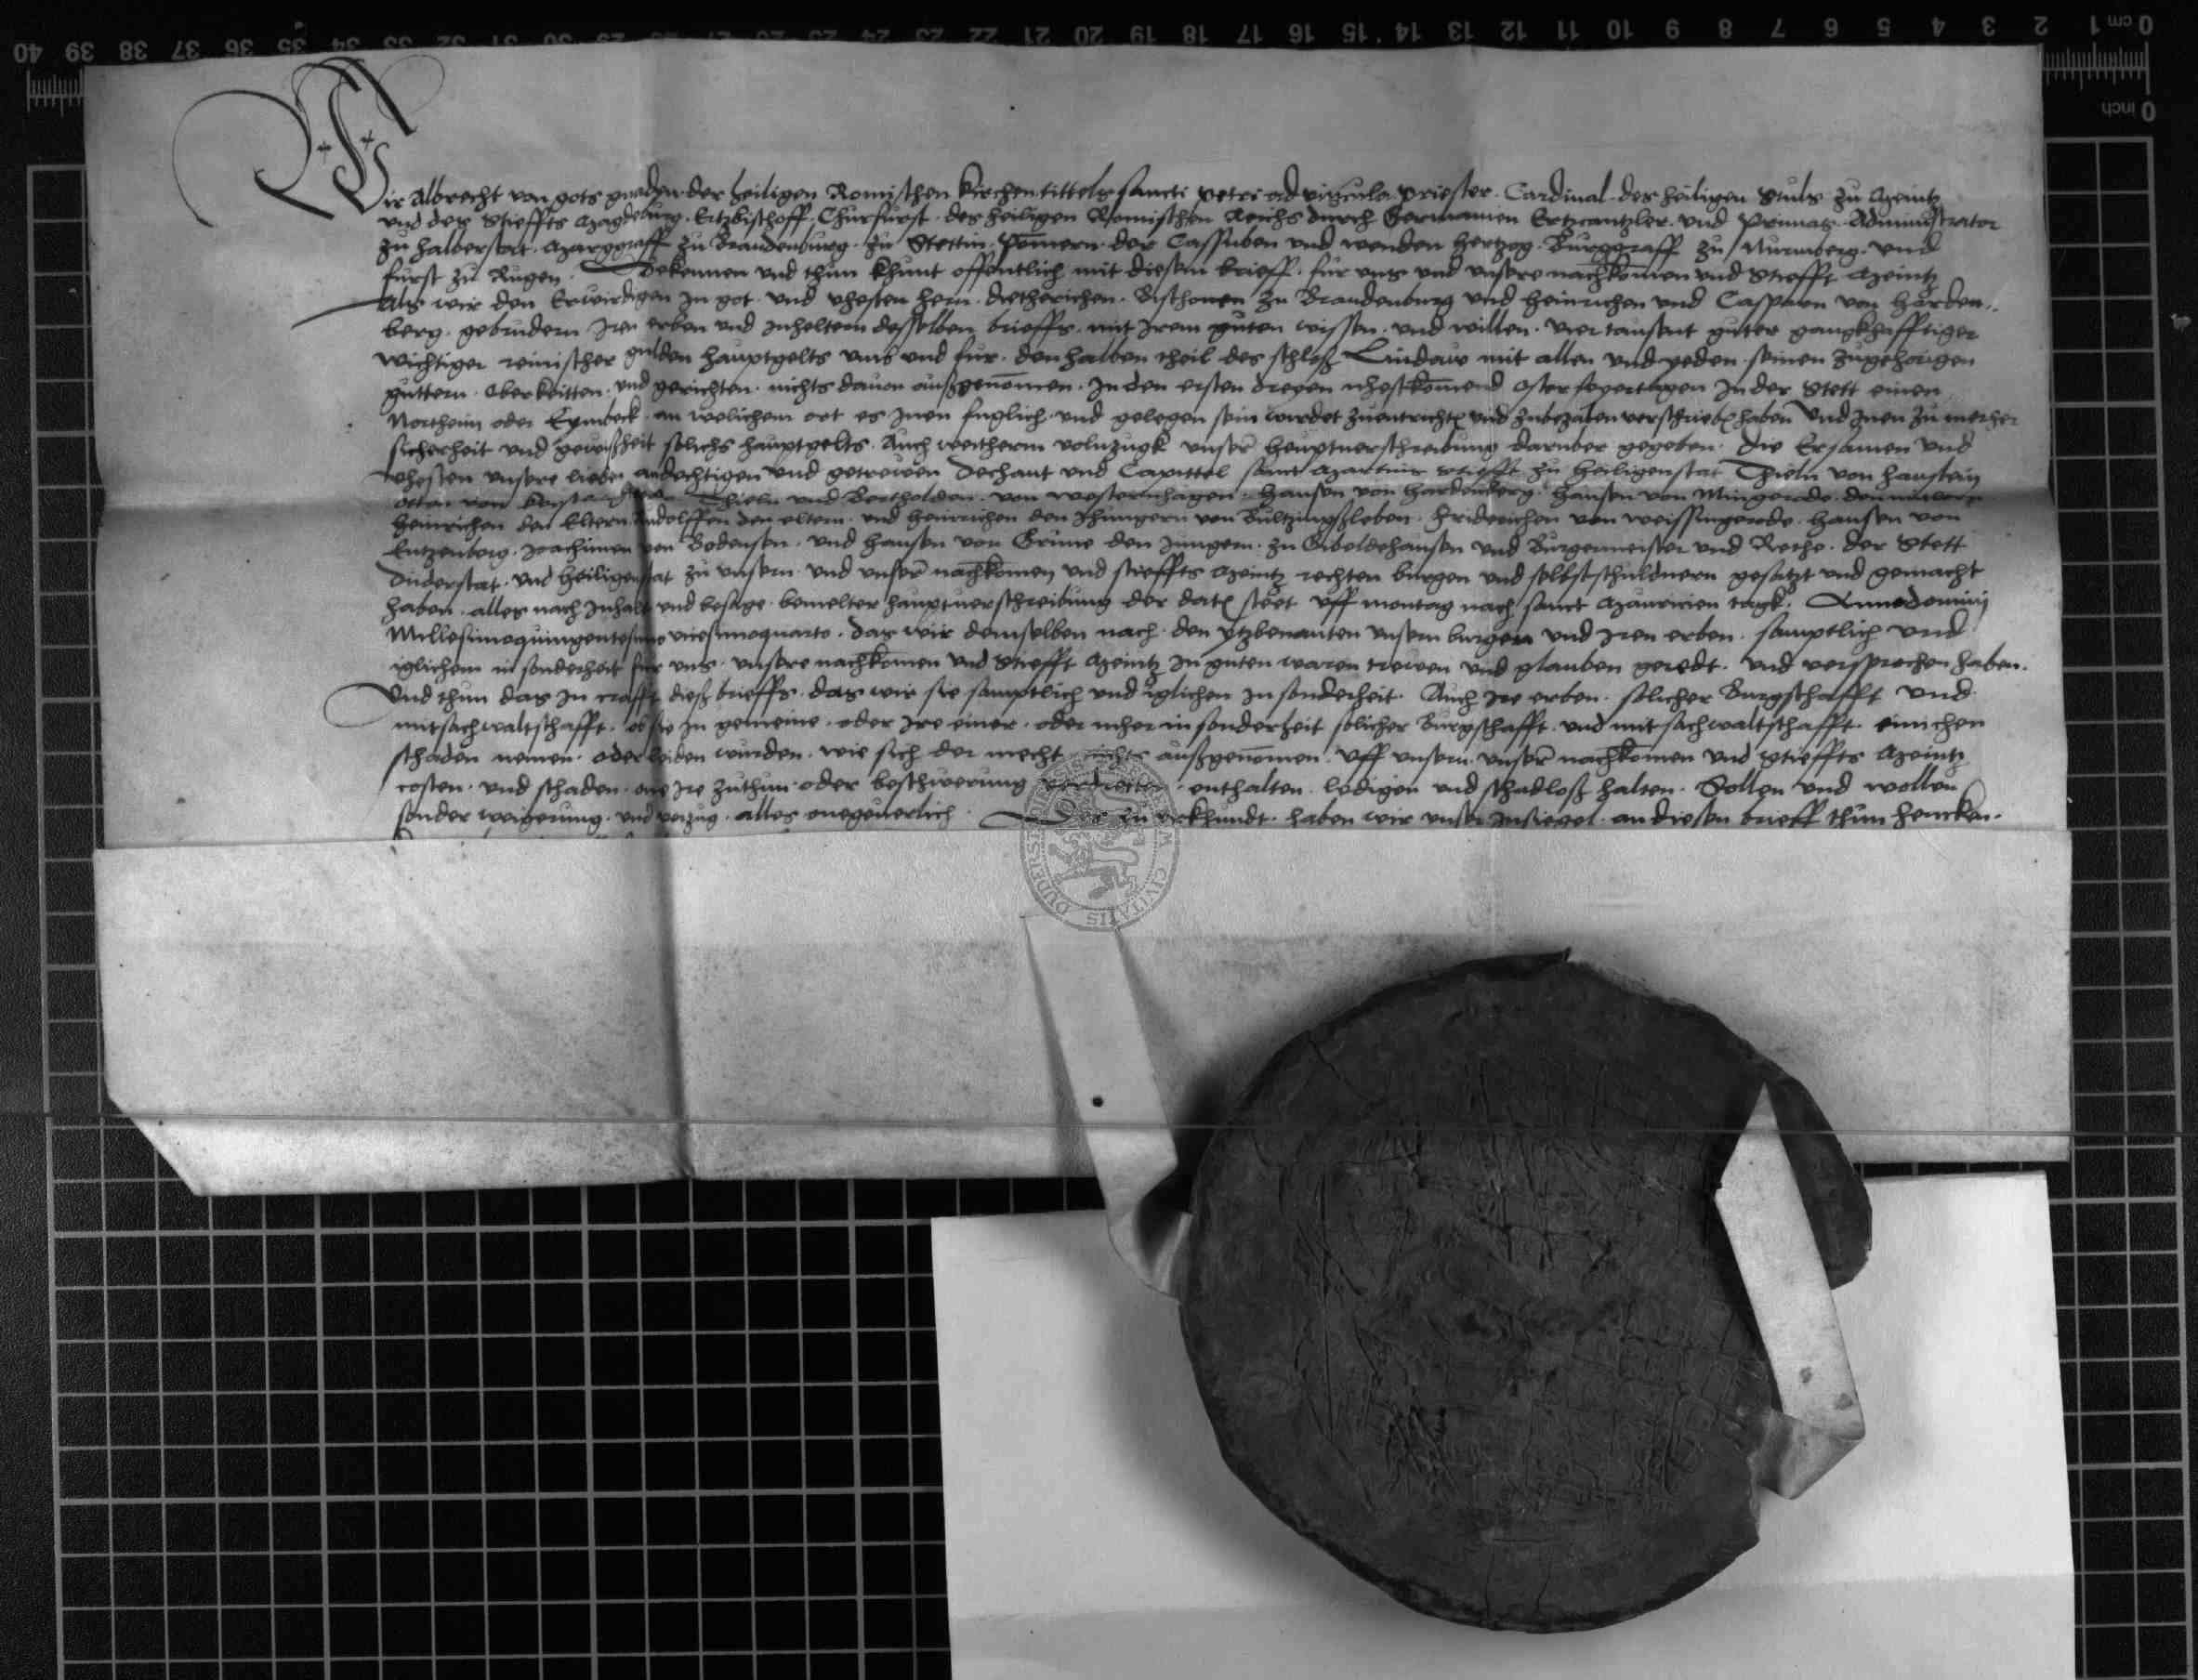 Wir Albrecht von gots gnaden der heiligen Romischen kirchen tittels sancti petri ad vincula priester Cardinal des heiligen Stuls zu Meintz
vnd des Stieffts Magdeburg Ertzbischoff Churfurst des heiligen Romischen Reichs durch Germanien Ertzcantzler vnd Primas Administrator
zu halberstat Marggraff zu Brandenburg zu Stettin Pomern der Cassuben vnd wenden hertzog Burggraff zu Nurmberg vnd
furst zu Rugen Bekennen vnd thun khunt offentlich mit diesem brieff fur vns vnd vnsere nachkomen vnd Stiefft Meintz
Als wir den Erwirdigen In got vnd vhesten hern Dietherichen Bischouen zu Brandenburg vnd heinrichen vnd Casparn von harden
berg gebrudern Iren erben vnd Inheltern desselben brieffs mit Irem guten wissen vnd willen vier tausent guter gangkhafftiger
wichtiger reinischer gulden hauptgelts vmb vnd fur den halben theil des schloß Lindaw mit allen vnd yeden seinen zugehorigen
guttern Oberkeitten vnd gerichten nichts dauon außgenomen In den ersten dreyen nhestkomend ostersfeyertagen In der Stett einen
Northeim oder Eymbeck an welichem ort es Inen fuglich vnd gelegen sein wirdet zuentricht vnd zubezalen verschrieb haben Vnd Inen zu merher
sicherheit vnd gewißheit solichs hauptgelts Auch weitherm volnzugk vnser heuptuerschreibung daruber gegeben die Ersamen vnd
vhesten vnsere lieben andechtigen vnd getrewen Dechant vnd Capittel sanct Martins stiefft zu heiligenstat Thieln von hanstein
otten von Thieln vnd Bertholden von westernhagen hansen von hardenberg hansen von Mingerode den
heinrichen den Eltern Rudolffen den eltern vnd heinrichen den Jhungern von Bultzingßleben Friderichen von weissingerode hansen von
Entzenberg Joachimen von Bodensen vnd hansen von Grune den Jungern zu Giboldehausen vnd Burgermeister vnd Rethe der Stett
Duderstat vnd heiligenstat zu vnsern vnd vnser nachkomen vnd stieffts Meintz rechten burgen vnd selbstschuldnern gesatzt vnd gemacht
haben alles nach Inhalt vnd besage bemelter hauptuerschreibung der dat steet vff montag nach sanct Mauricien tagk Annodominij
Millesimoquingentesimo vicesimoquarto das wir demselben nach den ytzbenanten vnsern burgen vnd Iren erben samptlich vnd
iglichem in sonderheit fur vns vnsere nachkomen vnd Stiefft Meintz In guten waren trewen vnd glauben geredt vnd versprochen haben
Vnd thun das In crafft dieß brieffs das wir sie samptlich vnd iglichen In sonderheit Auch Ire erben solicher Burgschafft vnd
mitsachwaltschafft ob sie In gemeine oder Ire einer oder mher in sonderheit solicher Burgschafft vnd mitsachwaltschafft einichen
schaden nemen oder leiden wurden wie sich der mecht nichts außgenomen vff vnsern vnser nachkomen vnd Stieffts Meintz
costen vnd schaden one Ire zuthun oder beschwerung vertretten enthalten ledigen vnd schadloß halten Sollen vnd wollen
sonder weigerung vnd verzug alles onegeuerlich Des zu vrkhundt haben wir vnser Insiegel an diesen brieff thun hencken